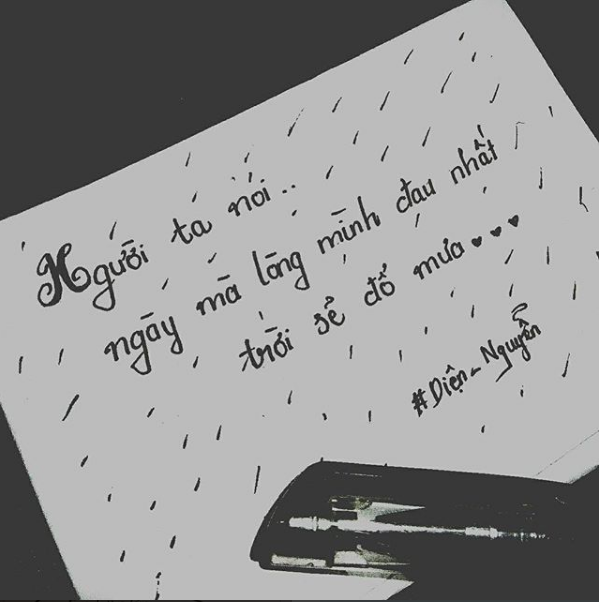 Người ta nói..
ngày mà lòng mình đau nhất
trời sẽ đổ mưa...
#Diện_Nguyễn